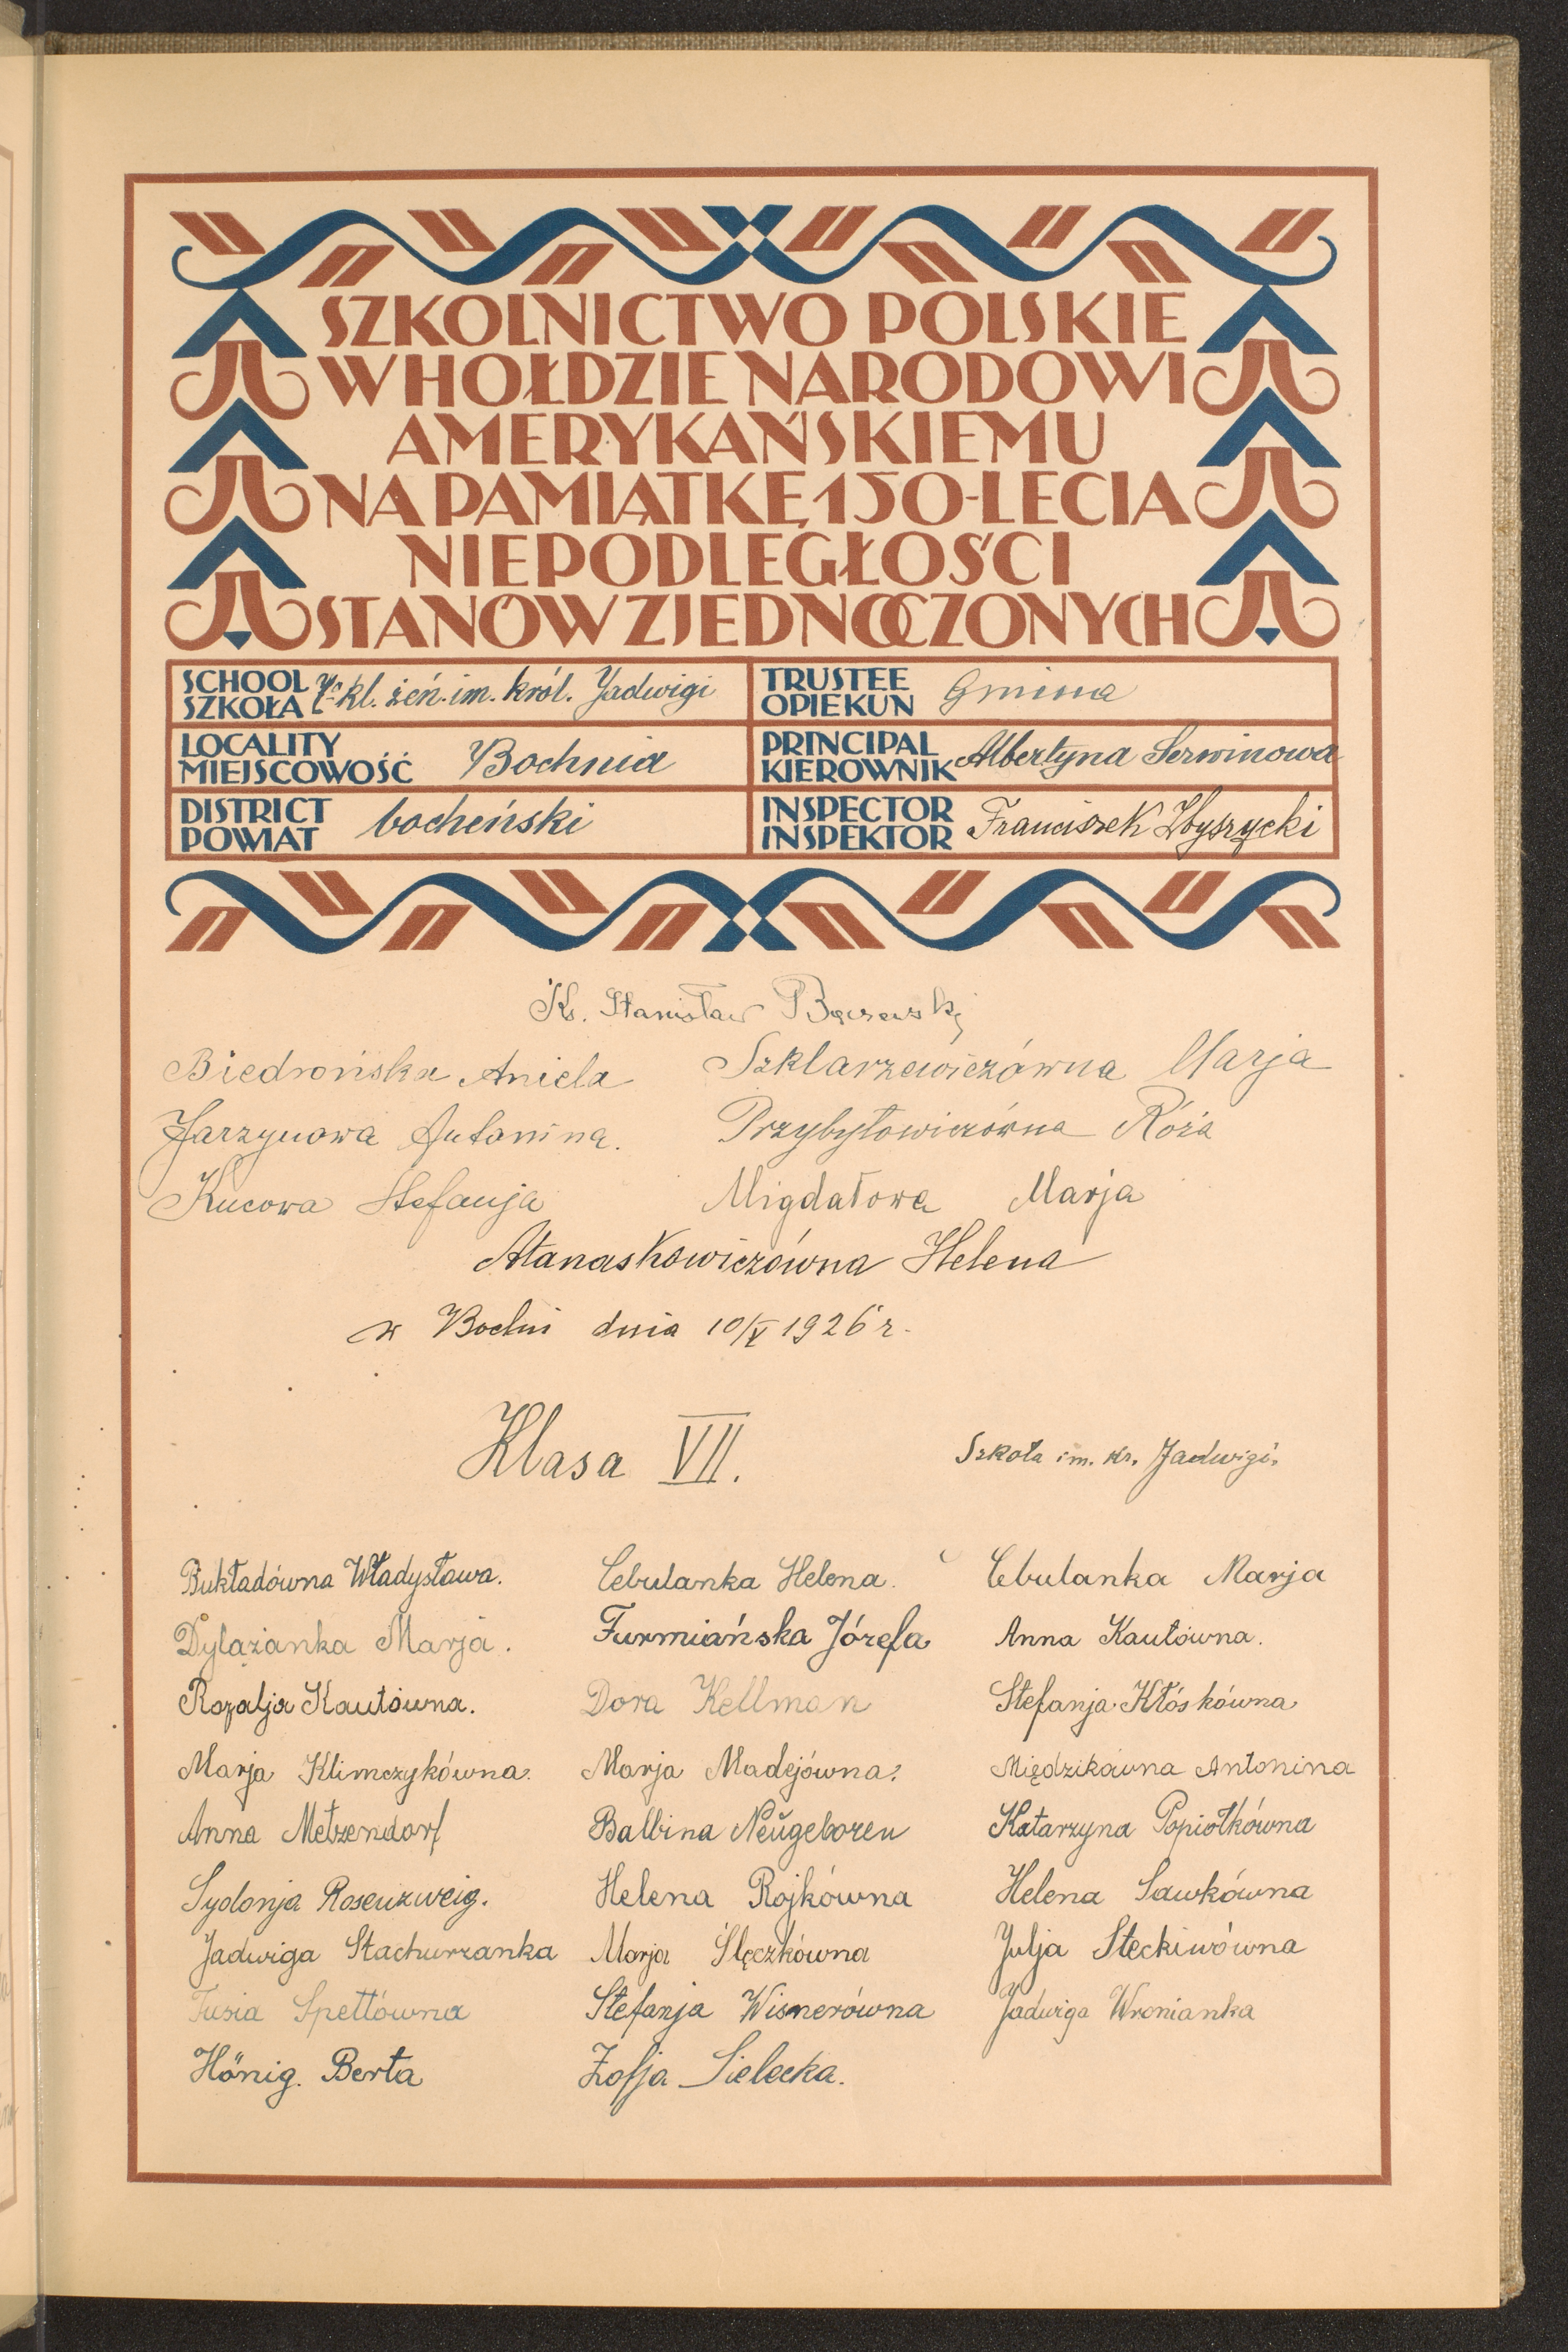 SZKOLNICTWO POLSKIE
W HOŁDZIE NARODOWI
AMERYKAŃSKIEMU
NA PAMIĄTKĘ 150-LECIA
NIEPODLEGŁOŚCI
STANÓW ZJEDNOCZONYCH
SCHOOL SZKOŁA 7 kl. żeń. im. król. Jadwigi
TRUSTEE OPIEKUN Gmina
LOCALITY MIEJSCOWOŚĆ Bochnia
PRINCIPAL KIEROWNIK Albertyna Serwinowa
DISTRICT POWIAT bocheński
INSPECTOR INSPEKTOR Franciszek Zbyszycki
Ks. Stanisław
Biedrońska Aniela Szklarzewiczówna Marja
Jarzynowa Antonina. Przybyłowiczówna Róża
Kucowa Stefanja Migdałowa Marja
Atanaskowiczówna Helena
w Bochni dnia 10/V 1926 r.
Klasa VII. Szkoła im. kr. Jadwigi.
Bukładówna Władysława. Cebulanka Helena. Cebulanka Marja
Dylążanka Marja. Furmiańska Józefa Anna Kautówna.
Rozalja Kautówna. Dora Kellman Stefanja Kłóskówna
Marja Klimczykówna. Marja Madejówna. Migdzikówna Antonina
Anna Metzendorf Balbina Neŭgeboren Katarzyna Popiołkówna
Sydonja Rosenzweig. Helena Rojkówna Helena Sawkówna
Jadwiga Stachurzanka Marja Ślęczkówna Julja Steckiwówna
Tusia Spettówna Stefanja Wisnerówna Jadwiga Wronianka
Hönig. Berta Zofja Sielecka.